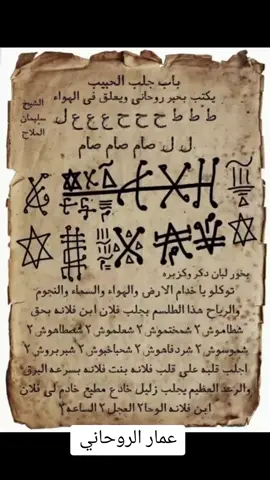 باب جلب الحبيب
يكتب بحبر روحاني ويعلق في الهواء
الشيخ
سليمان
الملاح
ط ط ط ح ح ح ع ع ع ل
ل ل صام صام صام
بخور لبان دكر وكزبره
توكلو يا خدام الارض والهواء والسماء والنجوم
والرياح هذا الطلسم بجلب فلان ابن فلانه بحق
شطاموش ٢ شمختموش ٢ شعلموش ٢ شمطاهوش ٢
شموسوش ٢ شردفاهوش ٢ شحباخبوش ٢ شبربروش ٢
اجلب قلبه علي قلب فلانه بنت فلانه بسرعه البرق
والرعد العظيم بجلب زليل خادع مطيع خادم لي فلان
ابن فلانه الوحا٢ العجل ٢ الساعه٢
عمار الروحاني